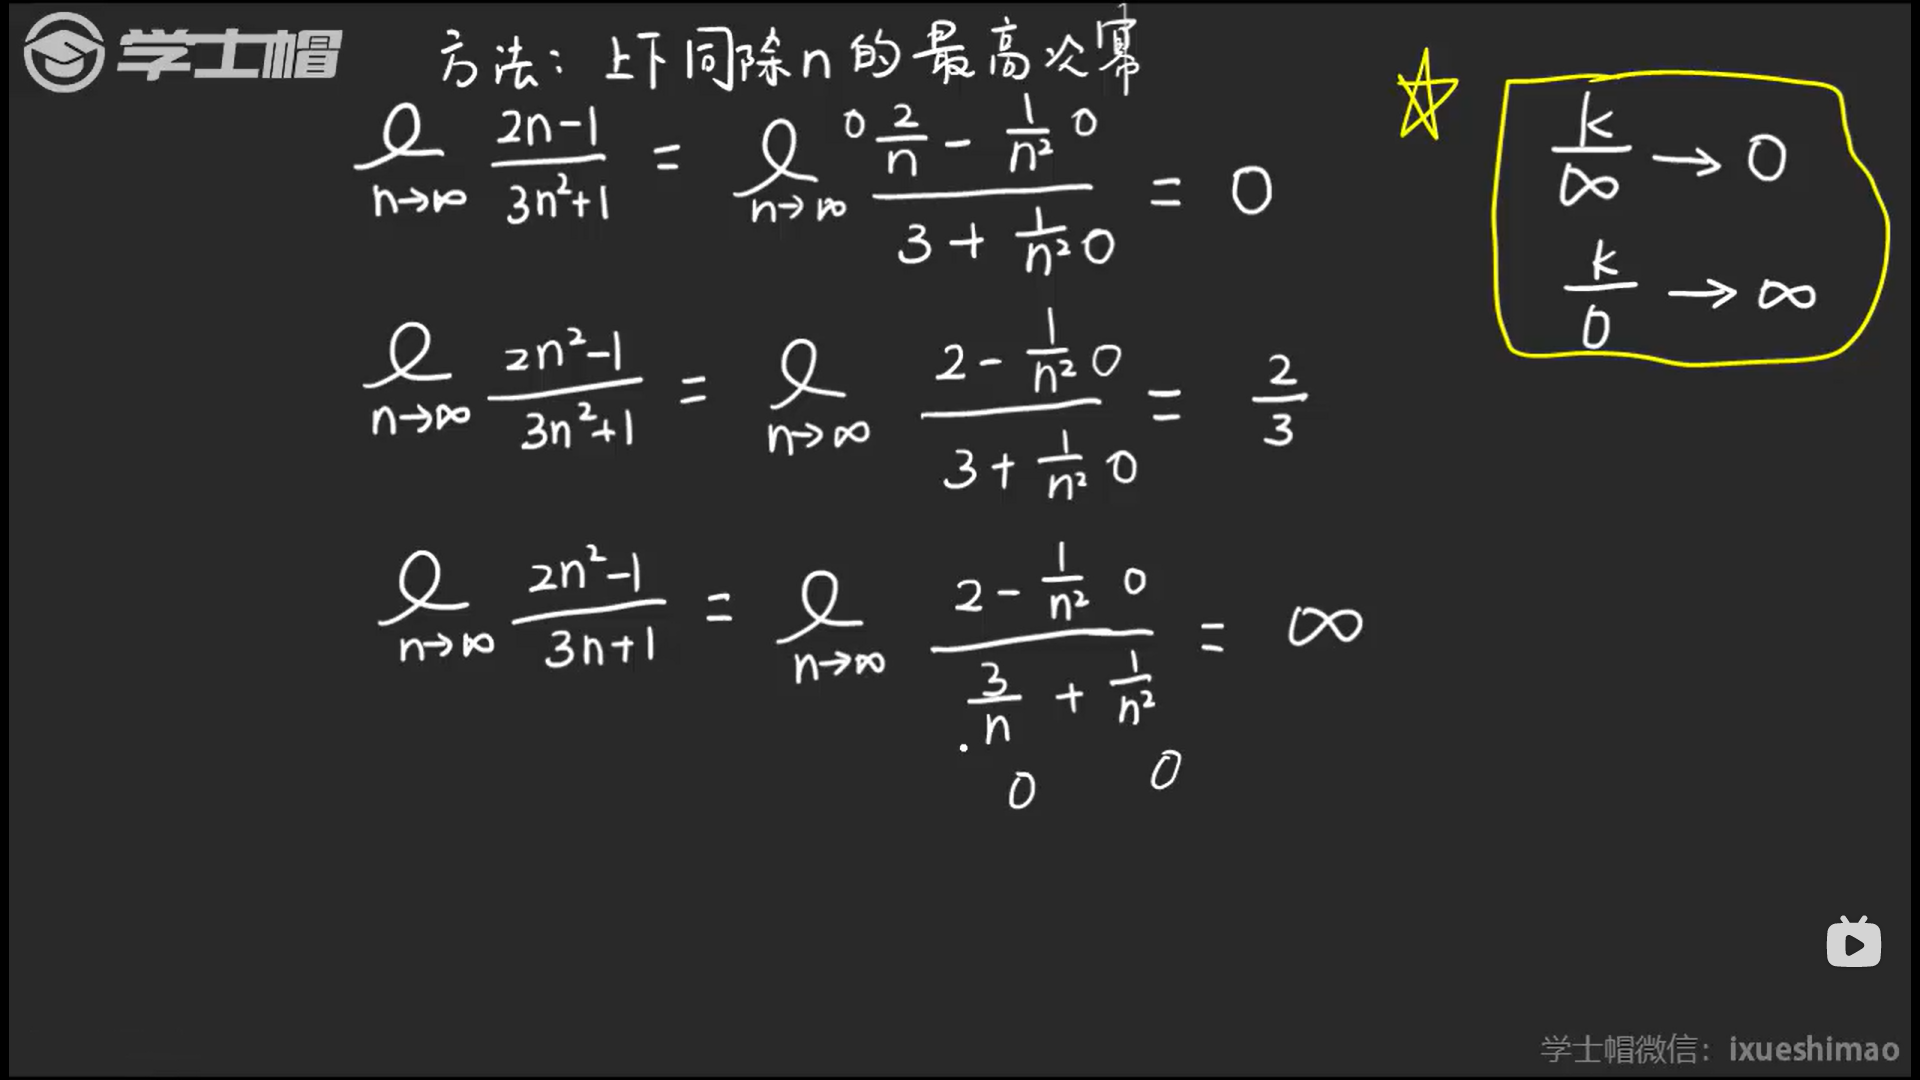 学士帽
方法：上下同除n的最高次幂
ℓ n→∞ (2n-1)/(3n²+1) = ℓ n→∞ (0 2/n - 1/n² 0)/(3 + 1/n² 0) = 0
☆ k/∞ → 0
k/0 → ∞
ℓ n→∞ (2n²-1)/(3n²+1) = ℓ n→∞ (2 - 1/n² 0)/(3 + 1/n² 0) = 2/3
ℓ n→∞ (2n²-1)/(3n+1) = ℓ n→∞ (2 - 1/n² 0)/(3/n + 1/n²) = ∞
0 0
学士帽微信：ixueshimao